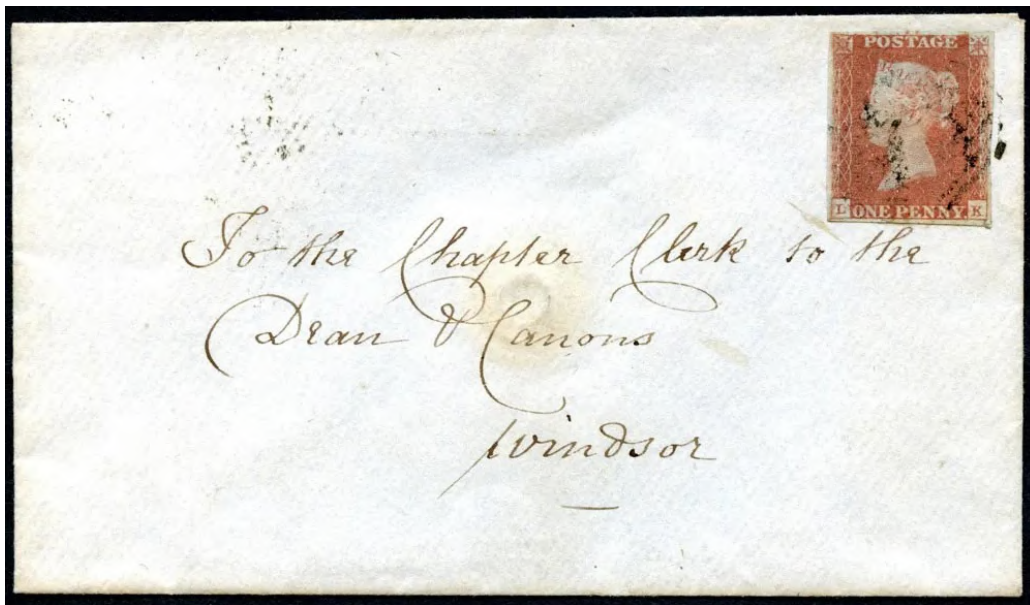 POSTAGE
L ONE PENNY K
To the Chapter Clerk to the
Dean & Canons
Windsor